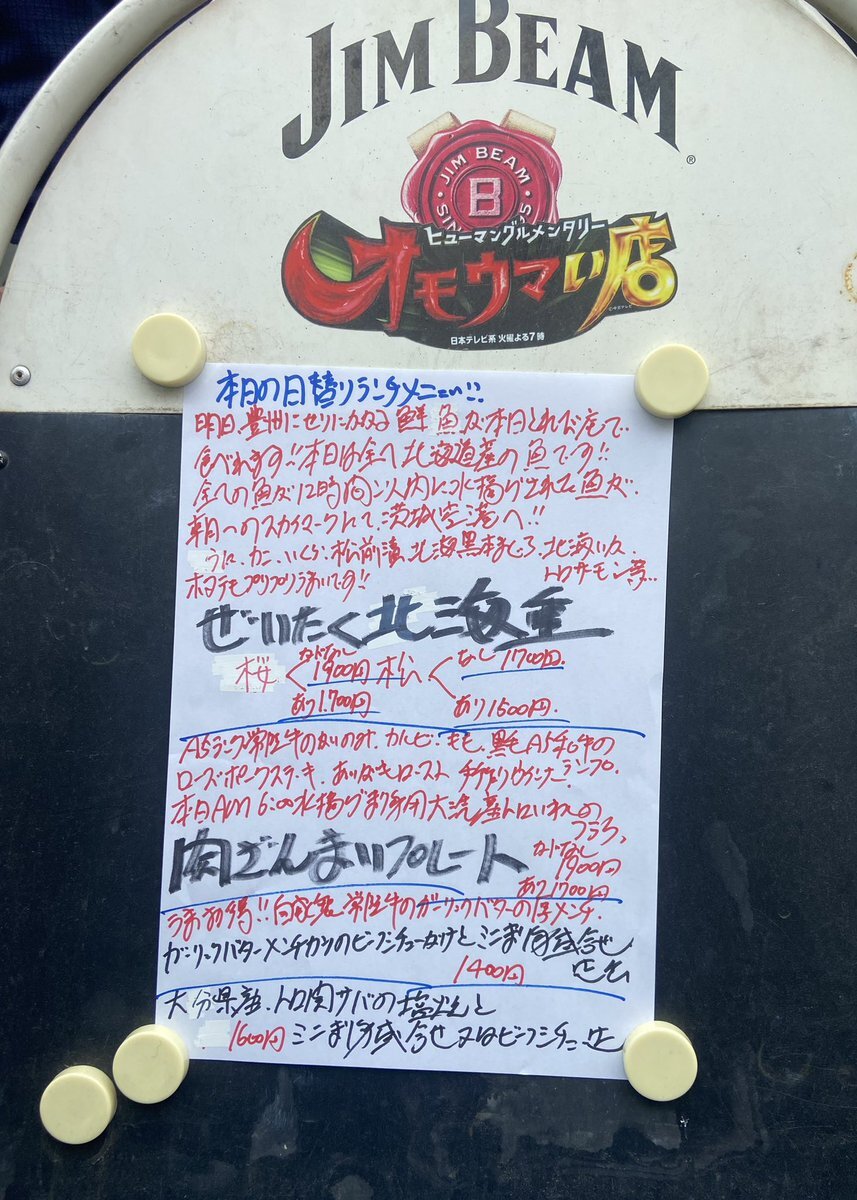 JIM BEAM
®
JIM BEAM
B
ヒューマングルメンタリー
オモウマい店
©中京テレビ
日本テレビ系 火曜よる7時
本日の日替りランチメニュー!!
明日、豊州にせりにかかる鮮魚が本日とれびあで
食べれます!!本日は全べ北海道産の魚です!!
全ての魚が12時間以内に水揚げされた魚が
朝一のスカイマークにて、茨城空港へ!!
うに、カニ、いくら、松前漬、北海黒本まぐろ、北海いか、
ホタテもプリプリうまいです!! トロサーモン等..
ぜいたく北海重
桜 カードなし 1900円 松 なし 1700円.
あり1.700円 あり1500円.
A5ランク常陸牛のかいのみ、カルビ、もも、黒毛A5和牛の
ローズポークステーキ、ロースト 手作りウインナー ランプ.
本日AM6:00水揚げ 大洗産トロいわしの
フライ、
肉ざんまいプレート
カードなし 1900円
あり1700円
うまお得!!自家製常陸牛のガーリックバターの厚メンチ.
ガーリックバターメンチカツのビーフシチューがけとミニ
1400円
大分県産、トロ関サバの塩焼と
1600円 ミニ 又はビーフシチュー